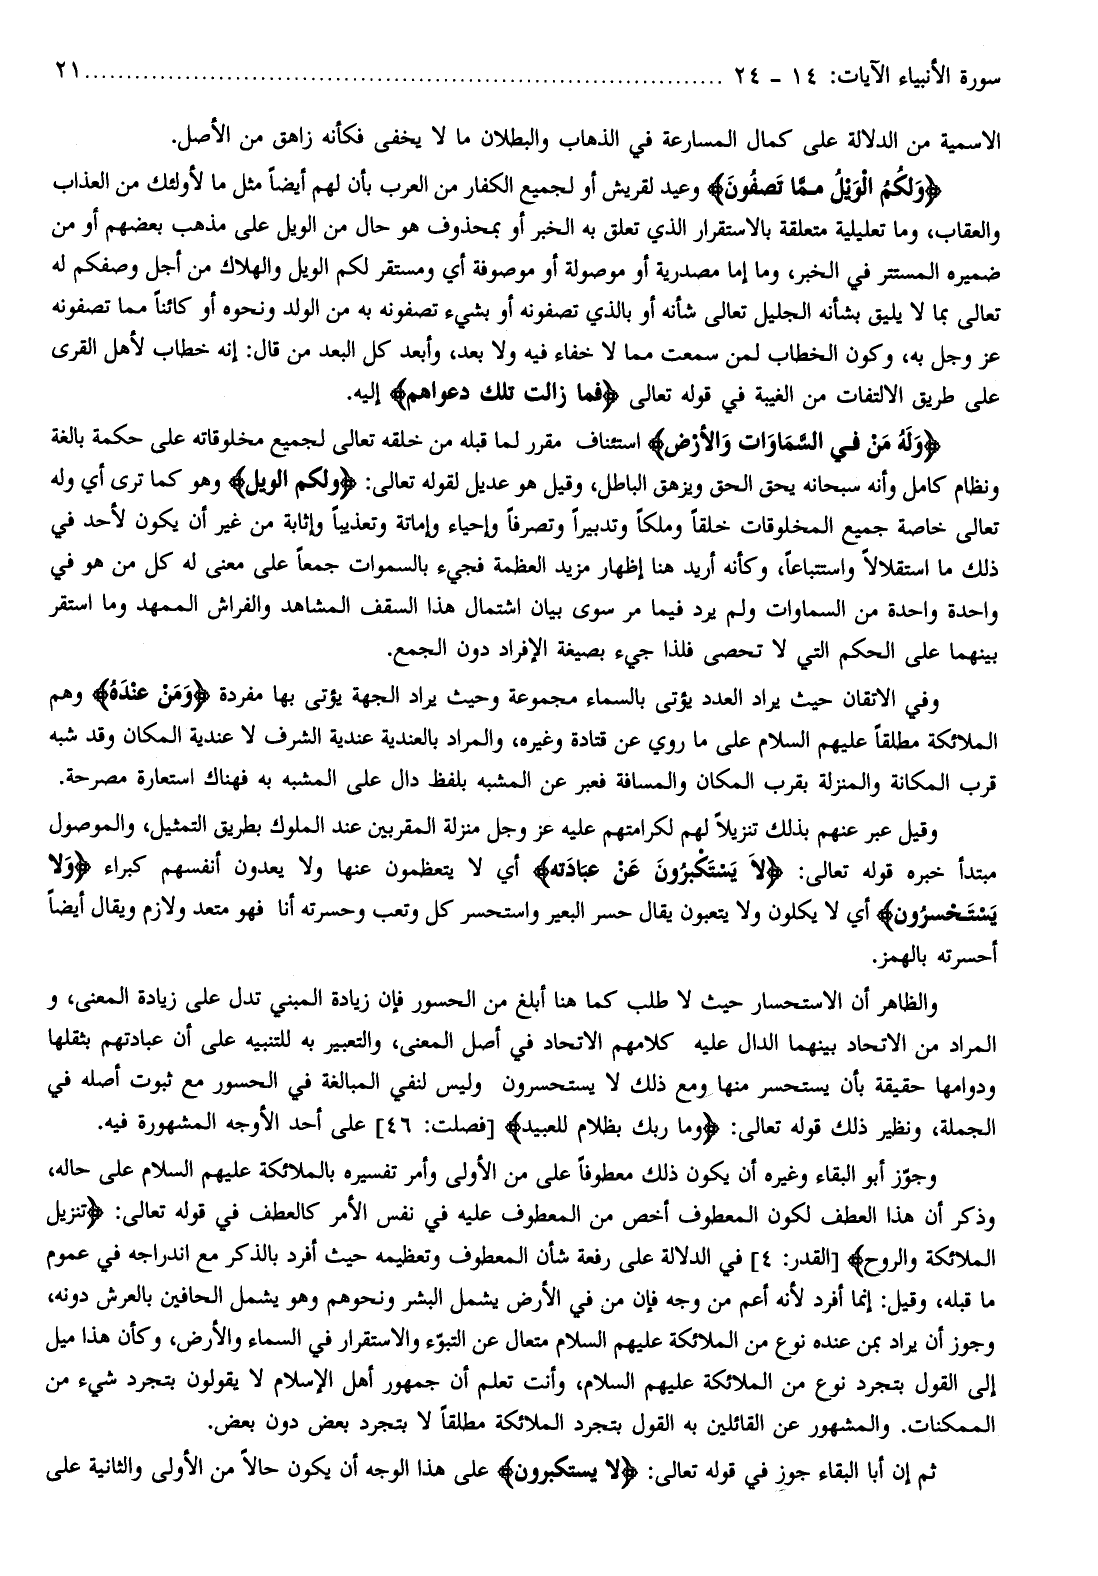 سورة الأنبياء الآيات: ١٤ - ٢٤ ................................................................................ ٢١
الاسمية من الدلالة على كمال المسارعة في الذهاب والبطلان ما لا يخفى فكأنه زاهق من الأصل.
﴿وَلَكُمُ الْوَيْلُ ممَّا تَصفُونَ﴾ وعيد لقريش أو لجميع الكفار من العرب بأن لهم أيضاً مثل ما لأولئك من العذاب
والعقاب، وما تعليلية متعلقة بالاستقرار الذي تعلق به الخبر أو بمحذوف هو حال من الويل على مذهب بعضهم أو من
ضميره المستتر في الخبر، وما إما مصدرية أو موصولة أو موصوفة أي ومستقر لكم الويل والهلاك من أجل وصفكم له
تعالى بما لا يليق بشأنه الجليل تعالى شأنه أو بالذي تصفونه أو بشيء تصفونه به من الولد ونحوه أو كائناً مما تصفونه
عز وجل به، وكون الخطاب لمن سمعت مما لا خفاء فيه ولا بعد، وأبعد كل البعد من قال: إنه خطاب لأهل القرى
على طريق الالتفات من الغيبة في قوله تعالى ﴿فما زالت تلك دعواهم﴾ إليه.
﴿وَلَهُ مَنْ فـي السَّمَاوَات وَالأَرْض﴾ استئناف مقرر لما قبله من خلقه تعالى لجميع مخلوقاته على حكمة بالغة
ونظام كامل وأنه سبحانه يحق الحق ويزهق الباطل، وقيل هو عديل لقوله تعالى: ﴿ولكم الويل﴾ وهو كما ترى أي وله
تعالى خاصة جميع المخلوقات خلقاً وملكاً وتدبيراً وتصرفاً وإحياء وإماتة وتعذيباً وإثابة من غير أن يكون لأحد في
ذلك ما استقلالاً واستتباعاً، وكأنه أريد هنا إظهار مزيد العظمة فجيء بالسموات جمعاً على معنى له كل من هو في
واحدة واحدة من السماوات ولم يرد فيما مر سوى بيان اشتمال هذا السقف المشاهد والفراش الممهد وما استقر
بينهما على الحكم التي لا تحصى فلذا جيء بصيغة الإفراد دون الجمع.
وفي الاتقان حيث يراد العدد يؤتى بالسماء مجموعة وحيث يراد الجهة يؤتى بها مفردة ﴿وَمَنْ عنْدَهُ﴾ وهم
الملائكة مطلقاً عليهم السلام على ما روي عن قتادة وغيره، والمراد بالعندية عندية الشرف لا عندية المكان وقد شبه
قرب المكانة والمنزلة بقرب المكان والمسافة فعبر عن المشبه بلفظ دال على المشبه به فهناك استعارة مصرحة.
وقيل عبر عنهم بذلك تنزيلاً لهم لكرامتهم عليه عز وجل منزلة المقربين عند الملوك بطريق التمثيل، والموصول
مبتدأ خبره قوله تعالى: ﴿لاَ يَسْتَكْبرُونَ عَنْ عبَادَته﴾ أي لا يتعظمون عنها ولا يعدون أنفسهم كبراء ﴿وَلا
يَسْتَـحْسرُون﴾ أي لا يكلون ولا يتعبون يقال حسر البعير واستحسر كل وتعب وحسرته أنا فهو متعد ولازم ويقال أيضاً
أحسرته بالهمز.
والظاهر أن الاستحسار حيث لا طلب كما هنا أبلغ من الحسور فإن زيادة المبني تدل على زيادة المعنى، و
المراد من الاتحاد بينهما الدال عليه كلامهم الاتحاد في أصل المعنى، والتعبير به للتنبيه على أن عبادتهم بثقلها
ودوامها حقيقة بأن يستحسر منها ومع ذلك لا يستحسرون وليس لنفي المبالغة في الحسور مع ثبوت أصله في
الجملة، ونظير ذلك قوله تعالى: ﴿وما ربك بظلام للعبيد﴾ [فصلت: ٤٦] على أحد الأوجه المشهورة فيه.
وجوّز أبو البقاء وغيره أن يكون ذلك معطوفاً على من الأولى وأمر تفسيره بالملائكة عليهم السلام على حاله،
وذكر أن هذا العطف لكون المعطوف أخص من المعطوف عليه في نفس الأمر كالعطف في قوله تعالى: ﴿تنزيل
الملائكة والروح﴾ [القدر: ٤] في الدلالة على رفعة شأن المعطوف وتعظيمه حيث أفرد بالذكر مع اندراجه في عموم
ما قبله، وقيل: إنما أفرد لأنه أعم من وجه فإن من في الأرض يشمل البشر ونحوهم وهو يشمل الحافين بالعرش دونه،
وجوز أن يراد بمن عنده نوع من الملائكة عليهم السلام متعال عن التبوّء والاستقرار في السماء والأرض، وكأن هذا ميل
إلى القول بتجرد نوع من الملائكة عليهم السلام، وأنت تعلم أن جمهور أهل الإسلام لا يقولون بتجرد شيء من
الممكنات. والمشهور عن القائلين به القول بتجرد الملائكة مطلقاً لا بتجرد بعض دون بعض.
ثم إن أبا البقاء جوز في قوله تعالى: ﴿لا يستكبرون﴾ على هذا الوجه أن يكون حالاً من الأولى والثانية على